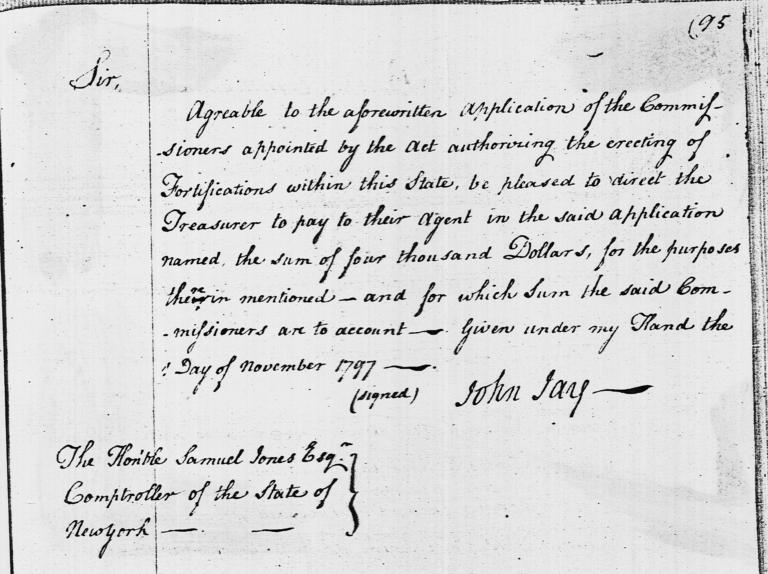 (95
Sir,
Agreable to the aforewritten Application of the Commis-
-sioners appointed by the Act authorizing the erecting of
Fortifications within this State, be pleased to direct the
Treasurer to pay to their Agent in the said Application
named, the sum of four thousand Dollars, for the purposes
therein mentioned — and for which Sum the said Com-
-missioners are to account — Given under my Hand the
Day of November 1797 —.
(signed) John Jay —
The Honble Samuel Jones Esqr
Comptroller of the State of
New York — —